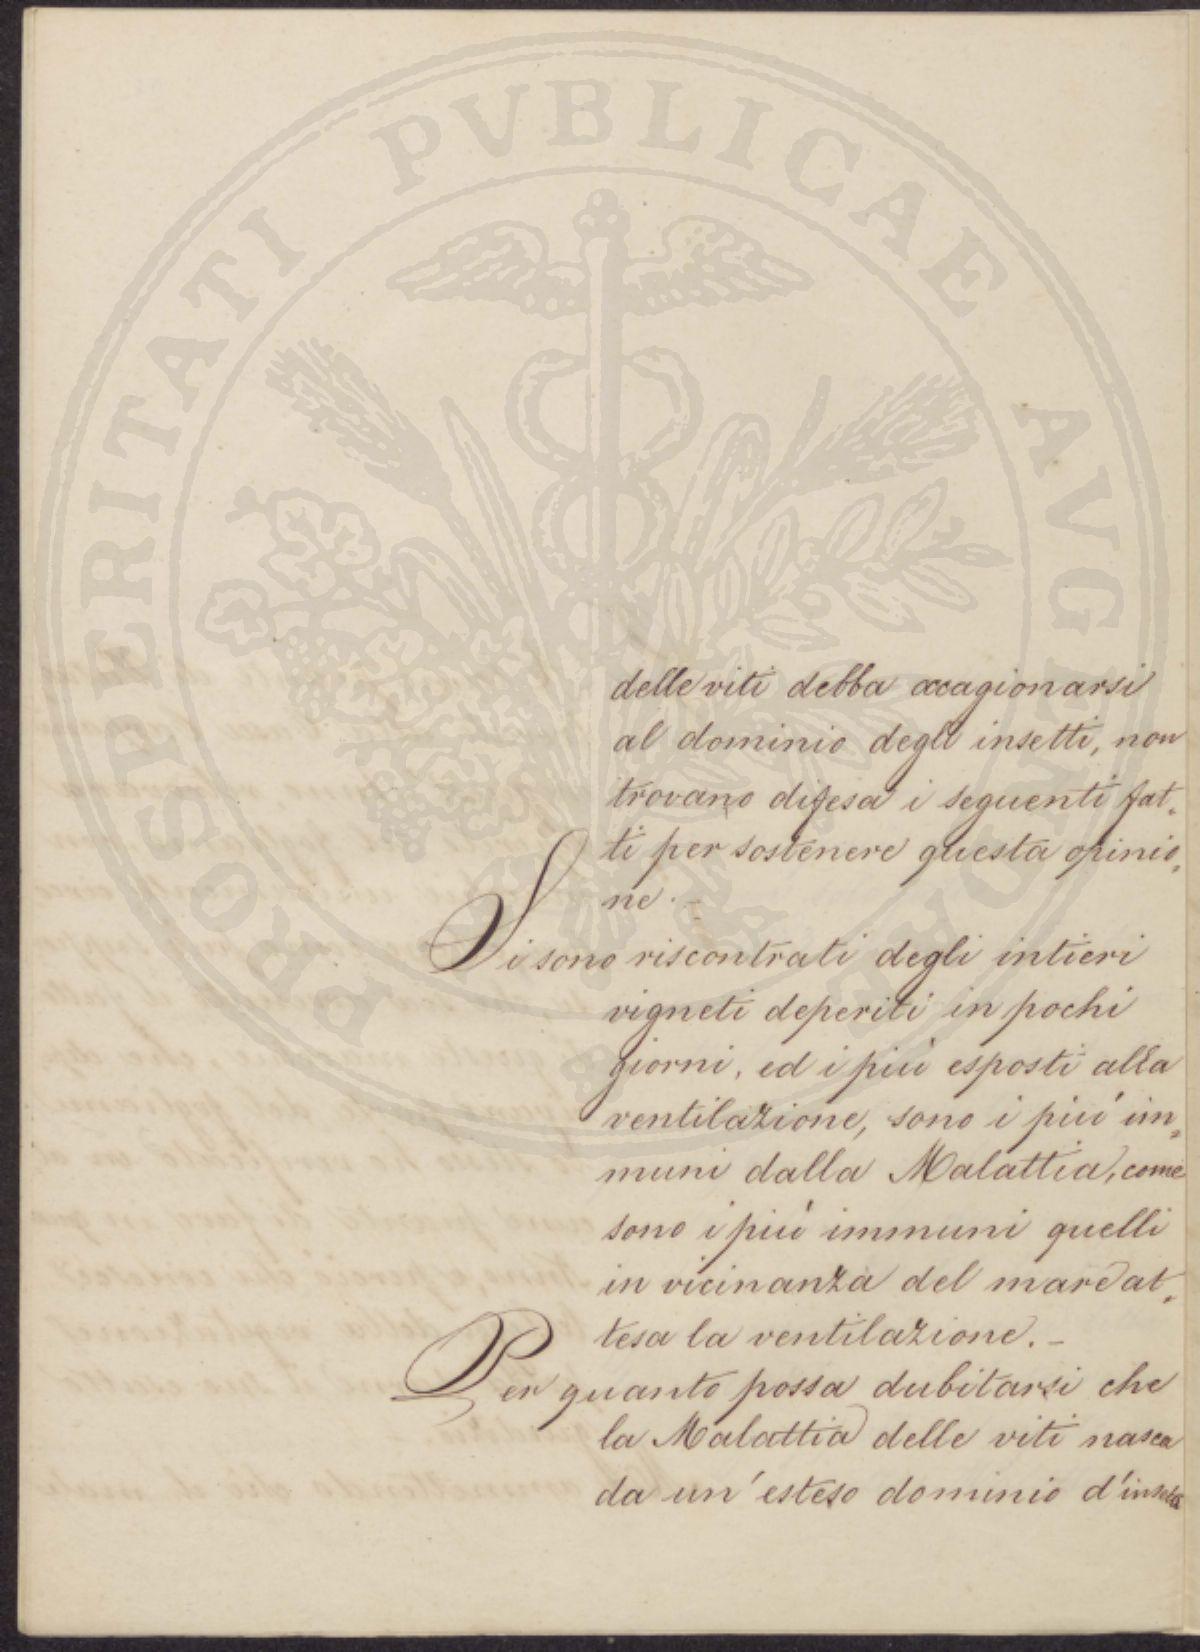 PROSPERITATI PVBLICAE AVGENDAE
delle viti debba accagionarsi
al dominio degli insetti, non
trovano difesa i seguenti fat„
ti per sostenere questa opinio„
ne. -
Si sono riscontrati degli intieri
vigneti deperiti in pochi
giorni, ed i più esposti alla
ventilazione, sono i più im„
muni dalla Malattia, come
sono i più immuni quelli
in vicinanza del mare at„
tesa la ventilazione. -
Per quanto possa dubitarsi che
la Malattia delle viti nasca
da un' esteso dominio d'insetti